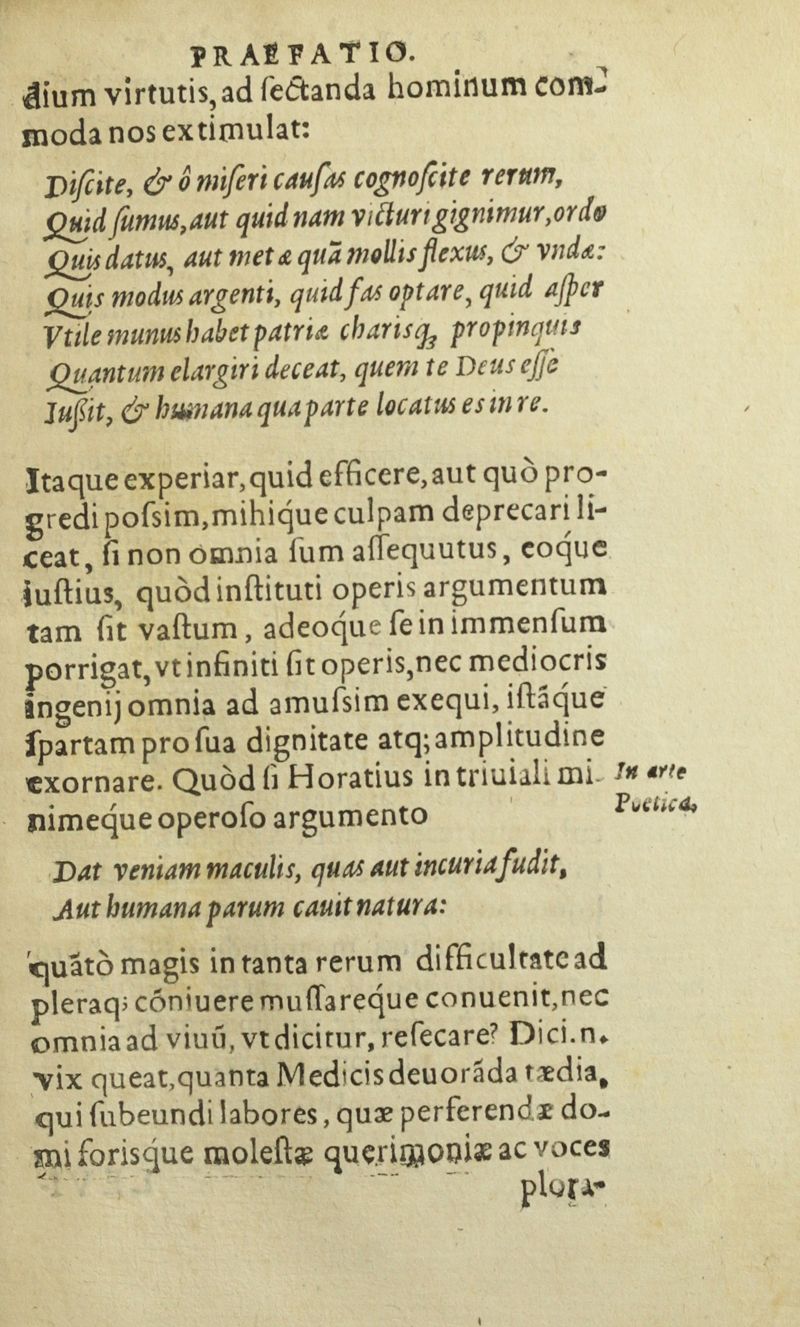 PRAEFATIO.
dium virtutis, ad ſectanda hominum com-
moda nos extimulat:
Diſcite, & ô miſeri cauſas cognoſcite rerum,
Quid ſumus, aut quid nam victuri gignimur, ordo
Quis datus, aut metæ quā mollis flexus, & vndæ:
Quis modus argenti, quid fas optare, quid aſper
Vtile munus habet patriæ charisq; propinquis
Quantum elargiri deceat, quem te Deus eſſe
Iuſsit, & humana qua parte locatus es in re.
Itaque experiar, quid efficere, aut quò pro-
gredi poſsim, mihique culpam deprecari li-
ceat, ſi non omnia ſum aſſequutus, eoque
iuſtius, quòd inſtituti operis argumentum
tam ſit vaſtum, adeoque ſe in immenſum
porrigat, vt infiniti ſit operis, nec mediocris
ingenij omnia ad amuſsim exequi, iſtāque
ſpartam pro ſua dignitate atq; amplitudine
exornare. Quòd ſi Horatius in triuiali mi-
nimeque operoſo argumento
In arte
Poetica,
Dat veniam maculis, quas aut incuria fudit,
Aut humana parum cauit natura:
quātò magis in tanta rerum difficultate ad
pleraq; cōniuere muſſareque conuenit, nec
omnia ad viuū, vt dicitur, reſecare? Dici .n.
vix queat, quanta Medicis deuorāda tædia,
qui ſubeundi labores, quæ perferendæ do-
mi forisque moleſtæ querimoniæ ac voces
plora-